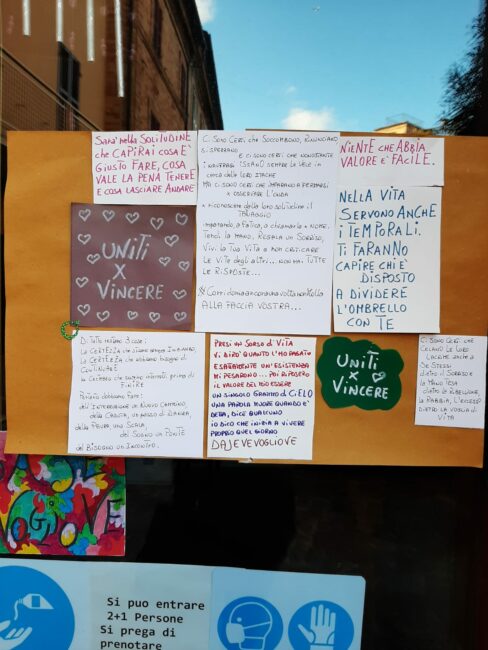 Sarà nella SOLITUDINE
che CAPIRAI COSA È
GIUSTO FARE, COSA
VALE LA PENA TENERE
E COSA LASCIARE ANDARE
UNITI
X
VINCERE
Ci SONO CERTI che SOCCOMBONO, RINUNCIANO
SI SPERDONO
E ci SONO CERTI CHE NONOSTANTE
i NAUFRAGI ISSANO SEMPRE LE VELE IN
CERCA delle loro ITACHE
MA CI SONO CERTI CHE IMPARANO A FERMARSI
X OSSERVARE L'ONDA
X riconoscere dalla loro solitudine il
CORAGGIO
imparando, A FATICA, A chiamarla X NOME.
Tendi la MANO, REGALA UN SORRISO,
Vivi la tua Vita A NON CRITICARE
LE VITE degli ALTRI... NON HAI TUTTE
LE RISPOSTE...
ALLA FACCIA VOSTRA...
NIENTE CHE ABBIA
VALORE È FACILE.
NELLA VITA
SERVONO ANCHE
I TEMPORALI.
TI FARANNO
CAPIRE CHI È
DISPOSTO
A DIVIDERE
L'OMBRELLO
CON TE
Di TUTTO restano 3 cose:
LA CERTEZZA che stiamo sempre INIZIANDO,
LA CERTEZZA che abbiamo bisogno di
CONTINUARE
LA CERTEZZA che saremo interrotti prima di
FINIRE
Perciò dobbiamo fare:
dell'INTERRUZIONE UN NUOVO CAMMINO,
della CADUTA, UN PASSO di DANZA,
della PAURA UNA SCALA,
del SOGNO UN PONTE
del BISOGNO UN INCONTRO.
PRESI UN SORSO di VITA
VI DIRÒ QUANTO L'HO PAGATO
ESATTAMENTE UN'ESISTENZA
UN SINGOLO GRAMMO di CIELO
UNA PAROLA MUORE QUANDO È
DETTA, DICE QUALCUNO
IO DICO CHE INIZIA A VIVERE
PROPRIO QUEL GIORNO
DAJEVEVOGLIOVE
UNITI
X
VINCERE
Ci SONO CERTI CHE
CELANO LE LORO
LACRIME ANCHE A
SE STESSI
DIETRO IL SORRISO E
LA MANO TESA
DIETRO LA VOGLIA DI
VITA
Si puo entrare
2+1 Persone
Si prega di
prenotare